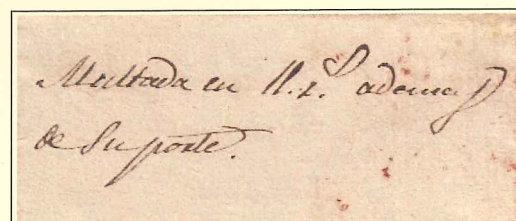 Multada en 11. r.s ademas
de Su porte.